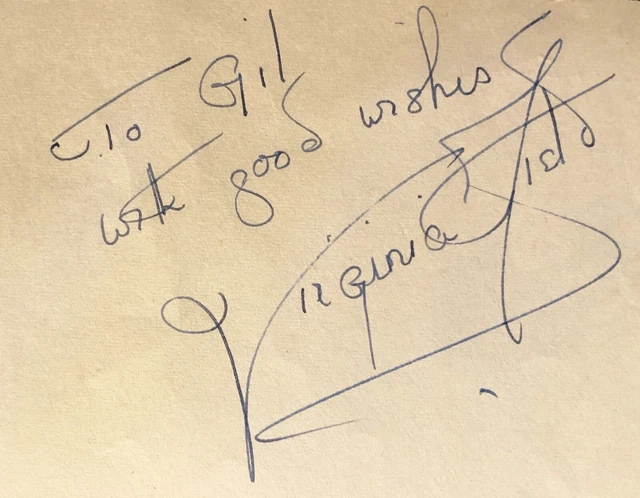 To Gil
with good wishes
Virginia Field